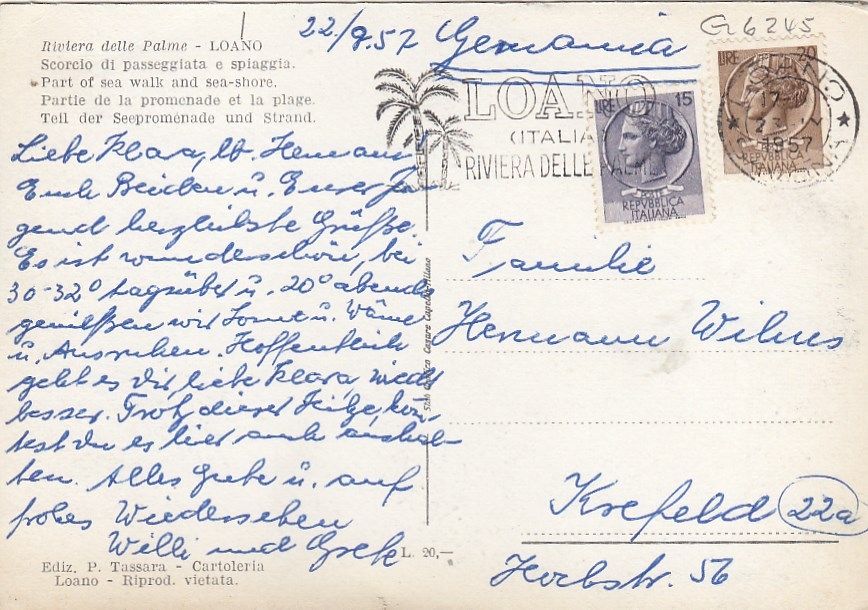 22/9.57 Germania
G 6245
Riviera delle Palme - LOANO
Scorcio di passeggiata e spiaggia.
Part of sea walk and sea-shore.
Partie de la promenade et la plage.
Teil der Seepromenade und Strand.
LOANO
(ITALIA
RIVIERA DELLE PALME
LIRE 15
POSTE
REPVBBLICA
ITALIANA
LIRE 20
REPVBBLICA
ITALIANA
LOANO
17-
1957
Liebe Klara, lb. Hermann
Euch Beiden u. Eurer Ju
gend herzlichste Grüße.
Es ist wunderschön, bei
30-32° tagsüber u. 20° abends
genießen wir Sonne u. Wärme
u. Ausruhen. Hoffentlich
geht es Dir, liebe Klara, wieder
besser. Trotz dieser Hitze, könn-
test du es hier auch aushal-
ten. Alles Gute u. auf
frohes Wiedersehen
Willi und Grete
Familie
Hermann Wilms
Krefeld 22a
str. 56
L. 20,—
Ediz. P. Tassara - Cartoleria
Loano - Riprod. vietata.
Cesare Capello Milano